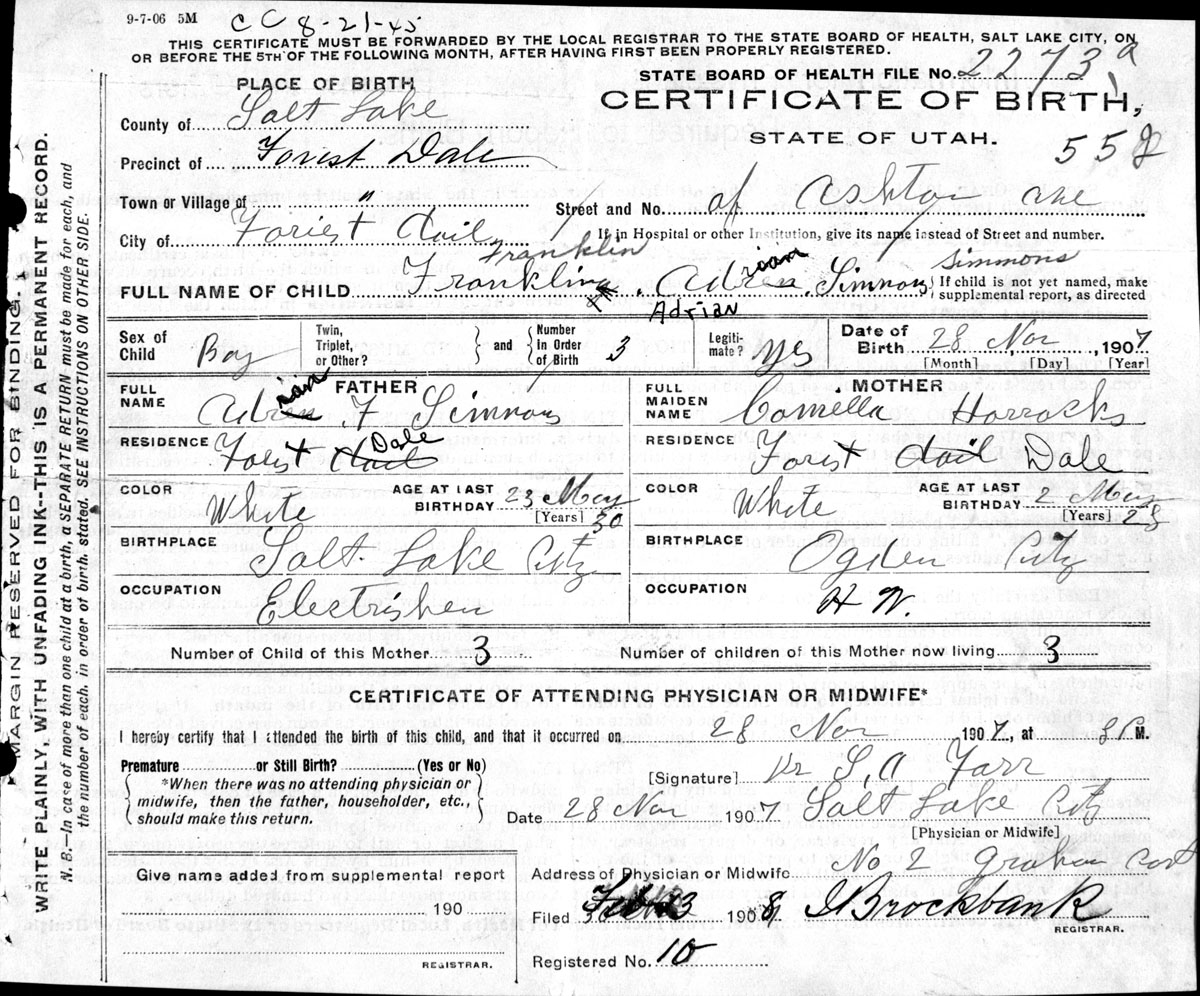 9-7-06 5M
CC 8-21-45
THIS CERTIFICATE MUST BE FORWARDED BY THE LOCAL REGISTRAR TO THE STATE BOARD OF HEALTH, SALT LAKE CITY, ON
OR BEFORE THE 5TH OF THE FOLLOWING MONTH, AFTER HAVING FIRST BEEN PROPERLY REGISTERED.
MARGIN RESERVED FOR BINDING.
WRITE PLAINLY, WITH UNFADING INK--THIS IS A PERMANENT RECORD.
N. B.—In case of more than one child at a birth, a SEPARATE RETURN must be made for each, and
the number of each, in order of birth, stated. SEE INSTRUCTIONS ON OTHER SIDE.
PLACE OF BIRTH
County of Salt Lake
Precinct of Forest Dale
Town or Village of "
City of Foriest Dail
STATE BOARD OF HEALTH FILE No. 2273 a
CERTIFICATE OF BIRTH,
STATE OF UTAH.
552
Street and No. of Ashton ave
If in Hospital or other Institution, give its name instead of Street and number.
Franklin Simmons
FULL NAME OF CHILD Franklin Adrian Simnons
Adrian
If child is not yet named, make
supplemental report, as directed
Sex of Child Boy
Twin, Triplet, or Other?
and
Number In Order of Birth 3
Legitimate? yes
Date of Birth 28 Nov 1907
[Month] [Day] [Year]
FATHER
FULL NAME Adrian F Simnons
RESIDENCE Forest Dail Dale
COLOR White
AGE AT LAST BIRTHDAY 23 May 30
[Years]
BIRTHPLACE Salt Lake City
OCCUPATION Electrishen
MOTHER
FULL MAIDEN NAME Comilla Horrocks
RESIDENCE Forest Dail Dale
COLOR White
AGE AT LAST BIRTHDAY 2 May 28
[Years]
BIRTHPLACE Ogden City
OCCUPATION H W.
Number of Child of this Mother 3
Number of children of this Mother now living 3
CERTIFICATE OF ATTENDING PHYSICIAN OR MIDWIFE*
I hereby certify that I attended the birth of this child, and that it occurred on 28 Nov 1907, at M.
Premature or Still Birth? (Yes or No)
*When there was no attending physician or
midwife, then the father, householder, etc.,
should make this return.
[Signature] Dr S. A Farr
Date 28 Nov 1907 Salt Lake City
[Physician or Midwife]
Give name added from supplemental report
190
REGISTRAR.
Address of Physician or Midwife No 2 Graham Cort
Filed Feb 3 1908 Brockbank
REGISTRAR.
Registered No. 10